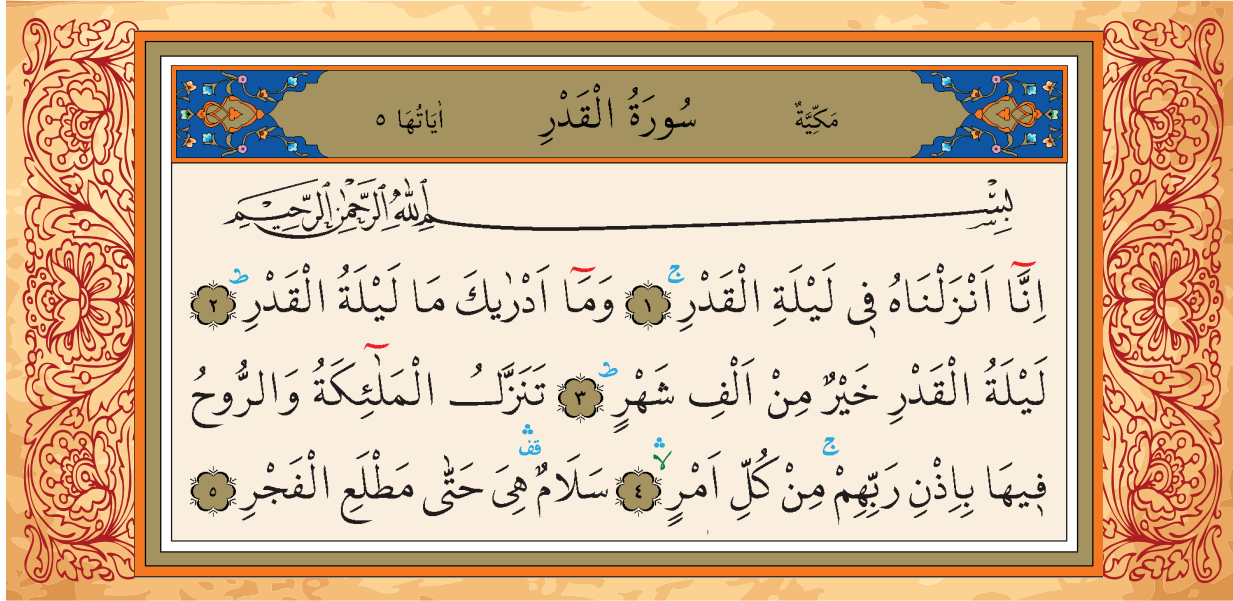 مَكِّيَّةٌ سُورَةُ الْقَدْرِ اٰيَاتُهَا ٥
بِسْمِ اللّٰهِ الرَّحْمٰنِ الرَّحِيمِ
اِنَّٓا اَنْزَلْنَاهُ فِى لَيْلَةِ الْقَدْرِۚ ﴿١﴾ وَمَٓا اَدْرٰيكَ مَا لَيْلَةُ الْقَدْرِۜ ﴿٢﴾
لَيْلَةُ الْقَدْرِ خَيْرٌ مِنْ اَلْفِ شَهْرٍۜ ﴿٣﴾ تَنَزَّلُ الْمَلٰٓئِكَةُ وَالرُّوحُ
فِيهَا بِاِذْنِ رَبِّهِمْۚ مِنْ كُلِّ اَمْرٍۙۛ ﴿٤﴾ سَلَامٌ۠ۛ هِىَ حَتّٰى مَطْلَعِ الْفَجْرِ ﴿٥﴾